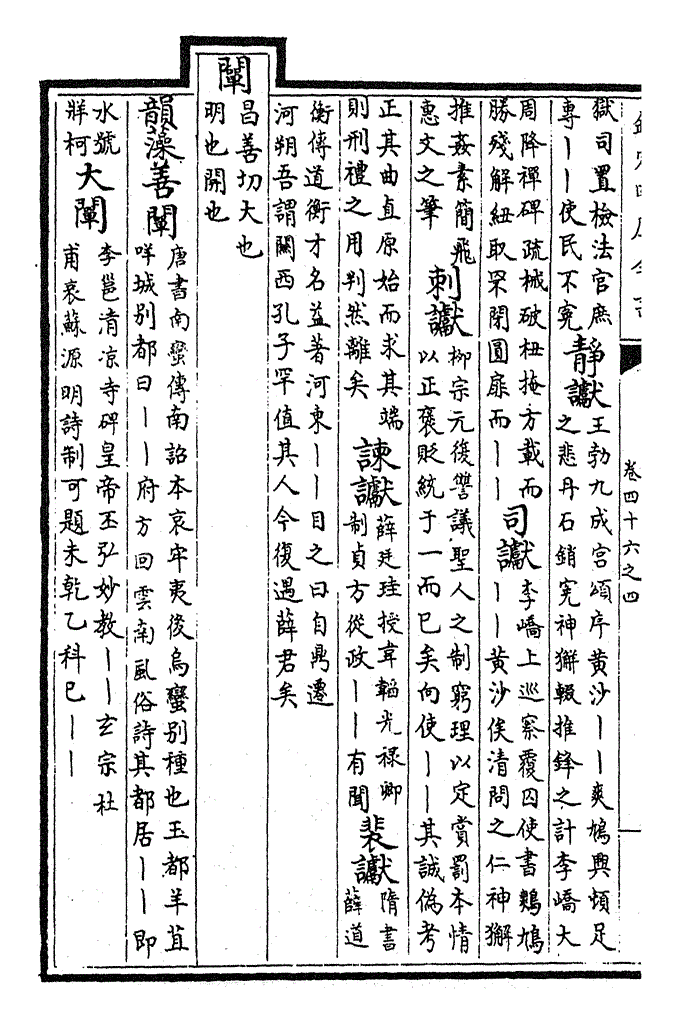 卷四十六之四
獄司置檢法官庶
專丨丨使民不寃
靜讞
王勃九成宮頌序黄沙丨丨爽鳩興頓足
之悲丹石銷寃神獬輟推鋒之計李嶠大
周降禪碑疏械破杻掩方載而
勝殘解紐取罘閉圓扉而丨丨
司讞
李嶠上巡察覆囚使書鶂鳩
丨丨黄沙俟清問之仁神獬
推姦素簡飛
惠文之筆
刺讞
柳宗元復讐議聖人之制窮理以定賞罰本情
以正褒貶統于一而已矣向使丨丨其誠偽考
正其曲直原始而求其端
則刑禮之用判然離矣
諫讞
薛廷珪授韋韜光禄卿
制貞方從政丨丨有聞
裴讞
隋書
薛道
衡傳道衡才名益著河東丨丨目之曰自鼎遷
河朔吾謂關西孔子罕值其人今復遇薛君矣
闡
昌善切大也
明也開也
韻藻善闡
唐書南蠻傳南詔本哀牢夷後烏蠻别種也王都羊苴
咩城别都曰丨丨府方回雲南風俗詩其都居丨丨即
水號
牂柯
大闡
李邕清凉寺碑皇帝丕弘妙教丨丨玄宗杜
甫哀蘇源明詩制可題未乾乙科已丨丨